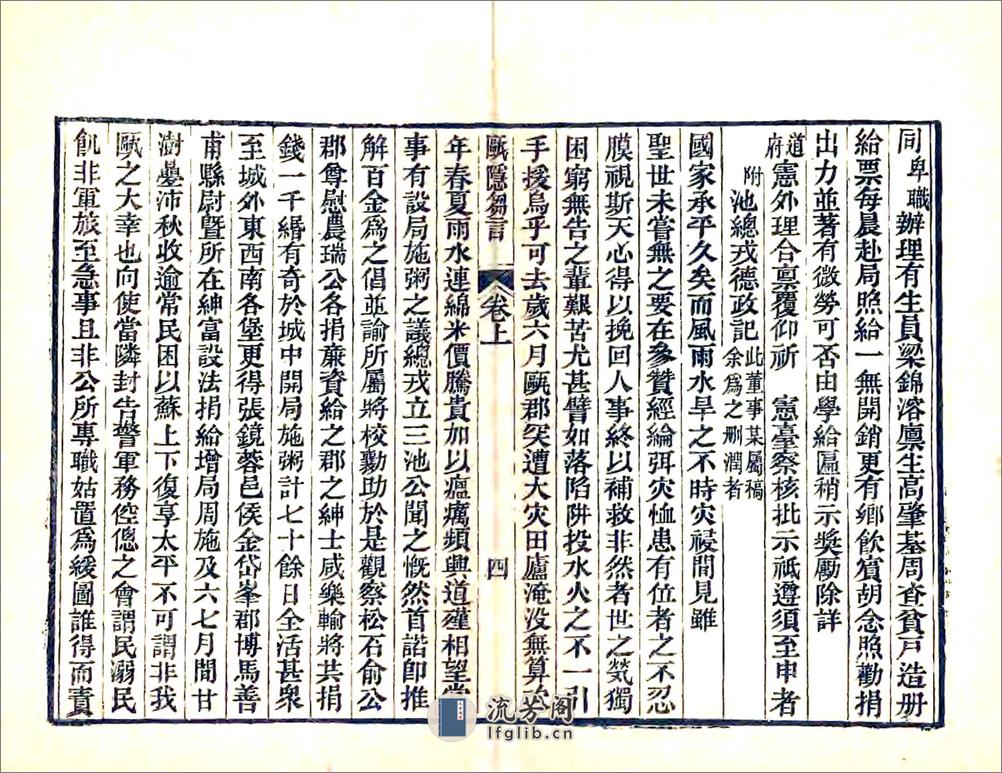 同卑職辦理有生員梁錦溶廩生高肇基周查貧戸造册
給票每晨赴局照給一無開銷更有鄉飲賔胡念照勸捐
出力並著有微勞可否由學給匾稍示奬勵除詳
道府憲外理合禀覆仰祈　憲臺察核批示祗遵須至申者
附池總戎德政記此董事某屬稿余爲之删潤者
國家承平久矣而風雨水旱之不時灾祲間見雖
聖世未嘗無之要在參贊經綸弭灾恤患有位者之不忍
膜視斯天心得以挽回人事終以補救非然者世之煢獨
困窮無告之輩艱苦尤甚譬如落陷阱投水火之不一引
手援烏乎可去歲六月甌郡突遭大灾田廬淹没無算
甌隱芻言　卷上　四
年春夏雨水連綿米價騰貴加以瘟癘頻興道殣相望
事有設局施粥之議總戎立三池公聞之慨然首諾即推
解百金爲之倡並諭所屬將校勷助於是觀察松石俞公
郡尊慰農瑞公各捐亷資給之郡之紳士咸樂輸將共捐
錢一千緡有奇於城中開局施粥計七十餘日全活甚衆
至城外東西南各堡更得張鏡蓉邑侯金岱峯郡博馬善
甫縣尉曁所在紳富設法捐給增局周施及六七月間甘
澍疊沛秋收逾常民困以蘇上下復享太平不可謂非我
甌之大幸也向使當隣封告警軍務倥傯之會謂民溺民
飢非軍旅至急事且非公所專職姑置爲緩圖誰得而責
流芳阁
lfglib.cn